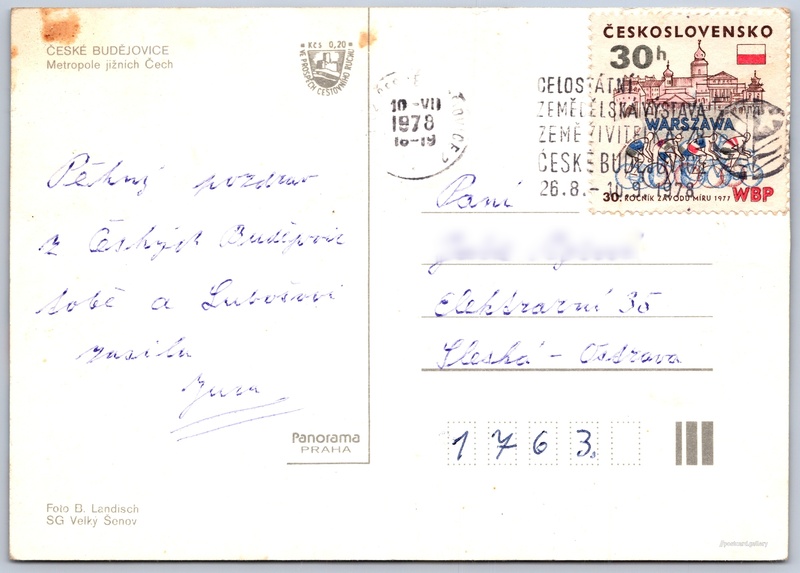 ČESKÉ BUDĚJOVICE
Metropole jižních Čech
Kčs 0,20
VE PROSPĚCH CESTOVNÍHO RUCHU
10-VII
1978
18-19
CELOSTÁTNÍ
ZEMĚDĚLSKÁ VÝSTAVA
ZEMĚ ŽIVITELKA
ČESKÉ BUDĚJOVICE
26.8.-10.9.1978
ČESKOSLOVENSKO
30h
WARSZAWA
30. ROČNÍK ZÁVODU MÍRU 1977 WBP
Pěkný pozdrav
z Českých Budějovic
tobě a Lubošovi
zasílá
Jura
Paní
Elektrární 35
Slezská - Ostrava
1763.
Panorama
PRAHA
Foto B. Landisch
SG Velký Šenov